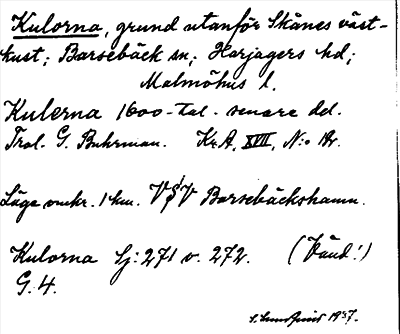 Kulorna, grund utanför Skånes väst-
kust; Barsebäck sn; Harjagers hd;
Malmöhus l.
Kulerna 1600-tal. senare del.
Trol. G. Buhrman. Kr.A, XVII, N:o
Läge omkr. 1 km. VSV Barsebäckshamn.
Kulorna Sj: 271 o. 272. (Vänd!)
G. 4.
1937.